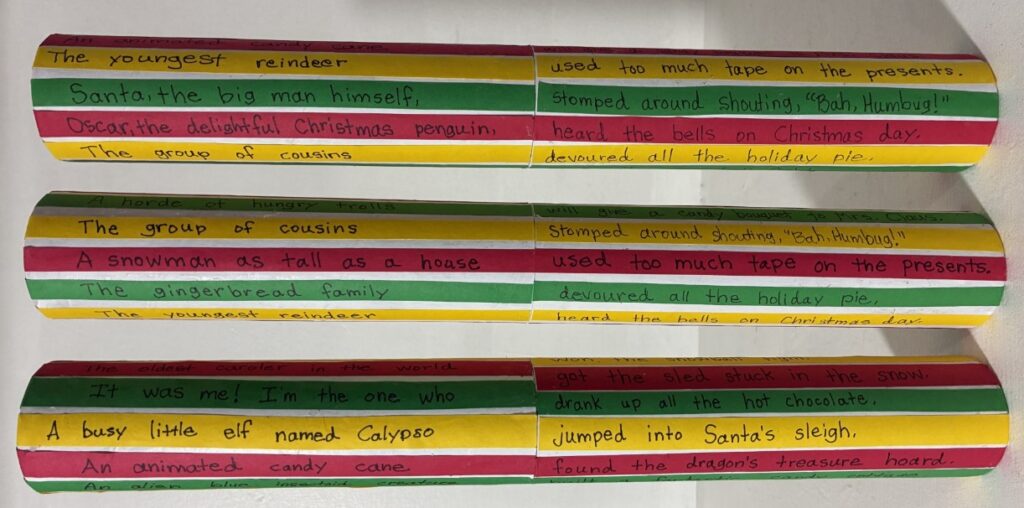 An animated candy cane,
The youngest reindeer used too much tape on the presents.
Santa, the big man himself, stomped around shouting, "Bah, Humbug!"
Oscar, the delightful Christmas penguin, heard the bells on Christmas day.
The group of cousins devoured all the holiday pie.
A horde of hungry trolls will give a candy bouquet to Mrs. Claus.
The group of cousins stomped around shouting, "Bah, Humbug!"
A snowman as tall as a house used too much tape on the presents.
The gingerbread family devoured all the holiday pie.
The youngest reindeer heard the bells on Christmas day.
The oldest caroler in the world won the snowball fight.
It was me! I'm the one who got the sled stuck in the snow.
A busy little elf named Calypso drank up all the hot chocolate.
An animated candy cane jumped into Santa's sleigh.
An alien blue insectoid creature found the dragon's treasure hoard.